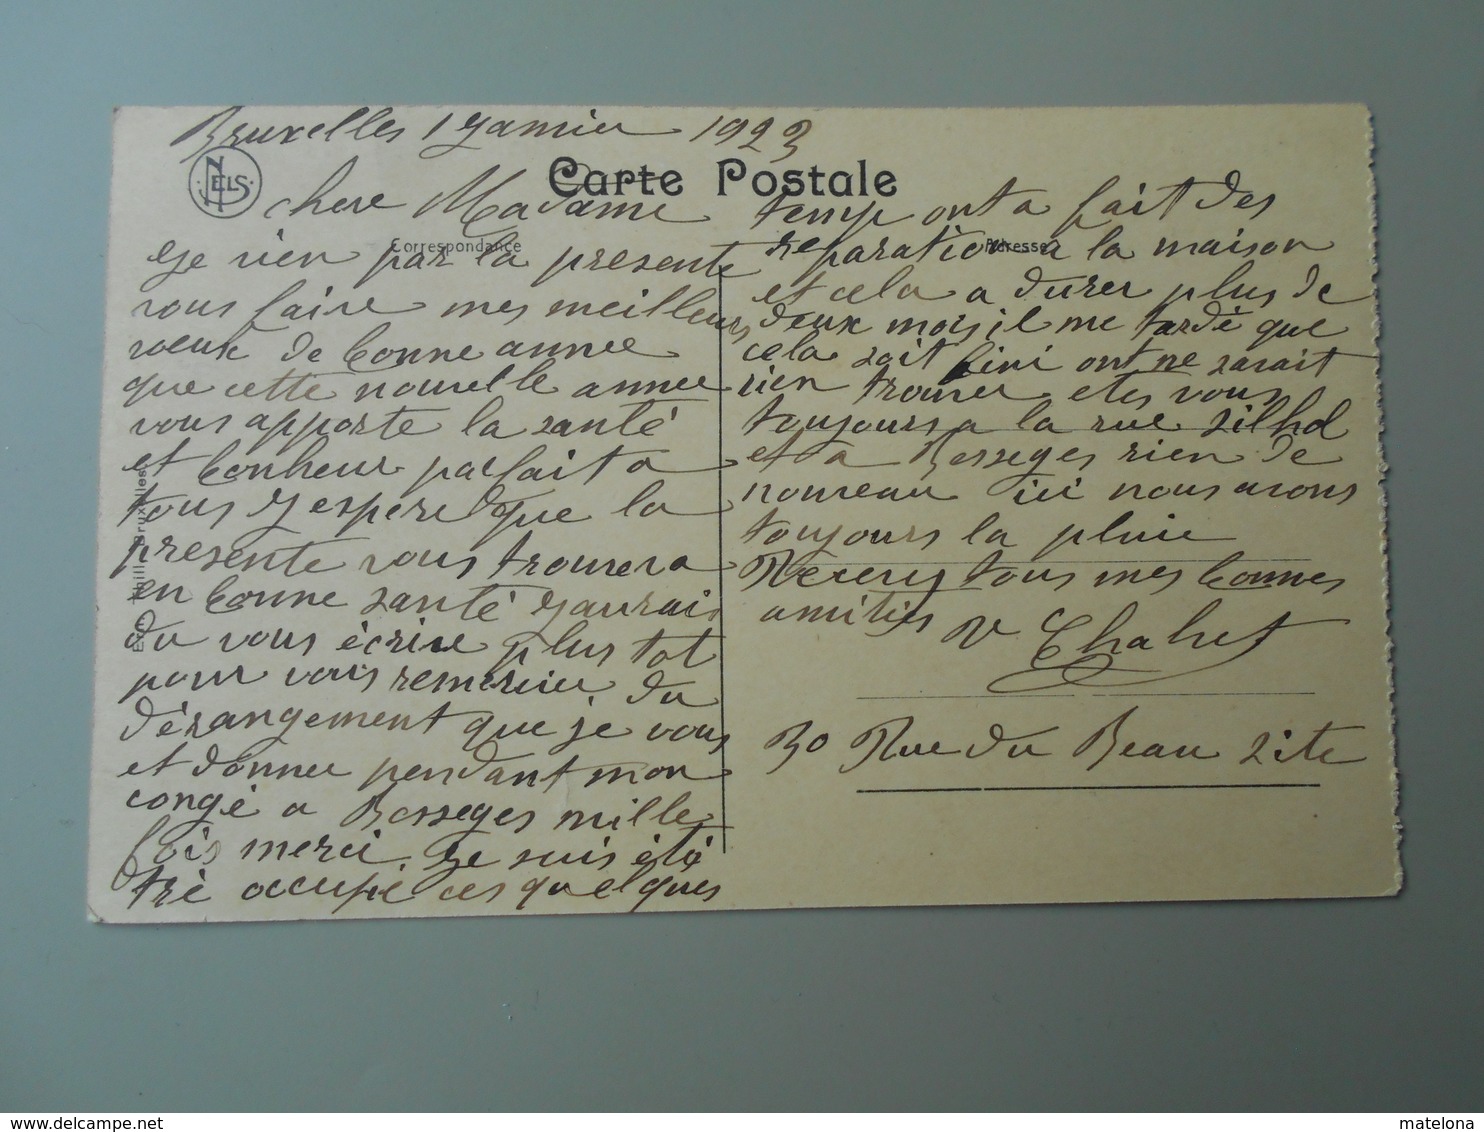 Bruxelles 1 Janvier 1923
NELS
Carte Postale
Correspondance
Adresse
Chere Madame
Je vien par la presente
vous faire mes meilleurs
voeux de bonne annee
que cette nouvelle annee
vous apporte la santé
et bonheur parfait a
tous J espere que la
presente vous trouvera
en bonne santé J aurais
du vous écrire plus tot
pour vous remercier du
dérangement que je vous
et donner pendant mon
congé a Besseges mille
fois merci. Je suis été
trè occupé ces quelques
temp ont a fait des
reparation a la maison
et cela a durer plus de
deux mois il me tardè que
cela soit fini ont ne savait
rien trouver etes vous
toujours a la rue Silhol
et a Besseges rien de
nouveau ici nous avons
toujours la pluie
Recevez tous mes bonnes
amitiés
Ve Chabret
30 Rue du Beau Site
Bruxelles
matelona